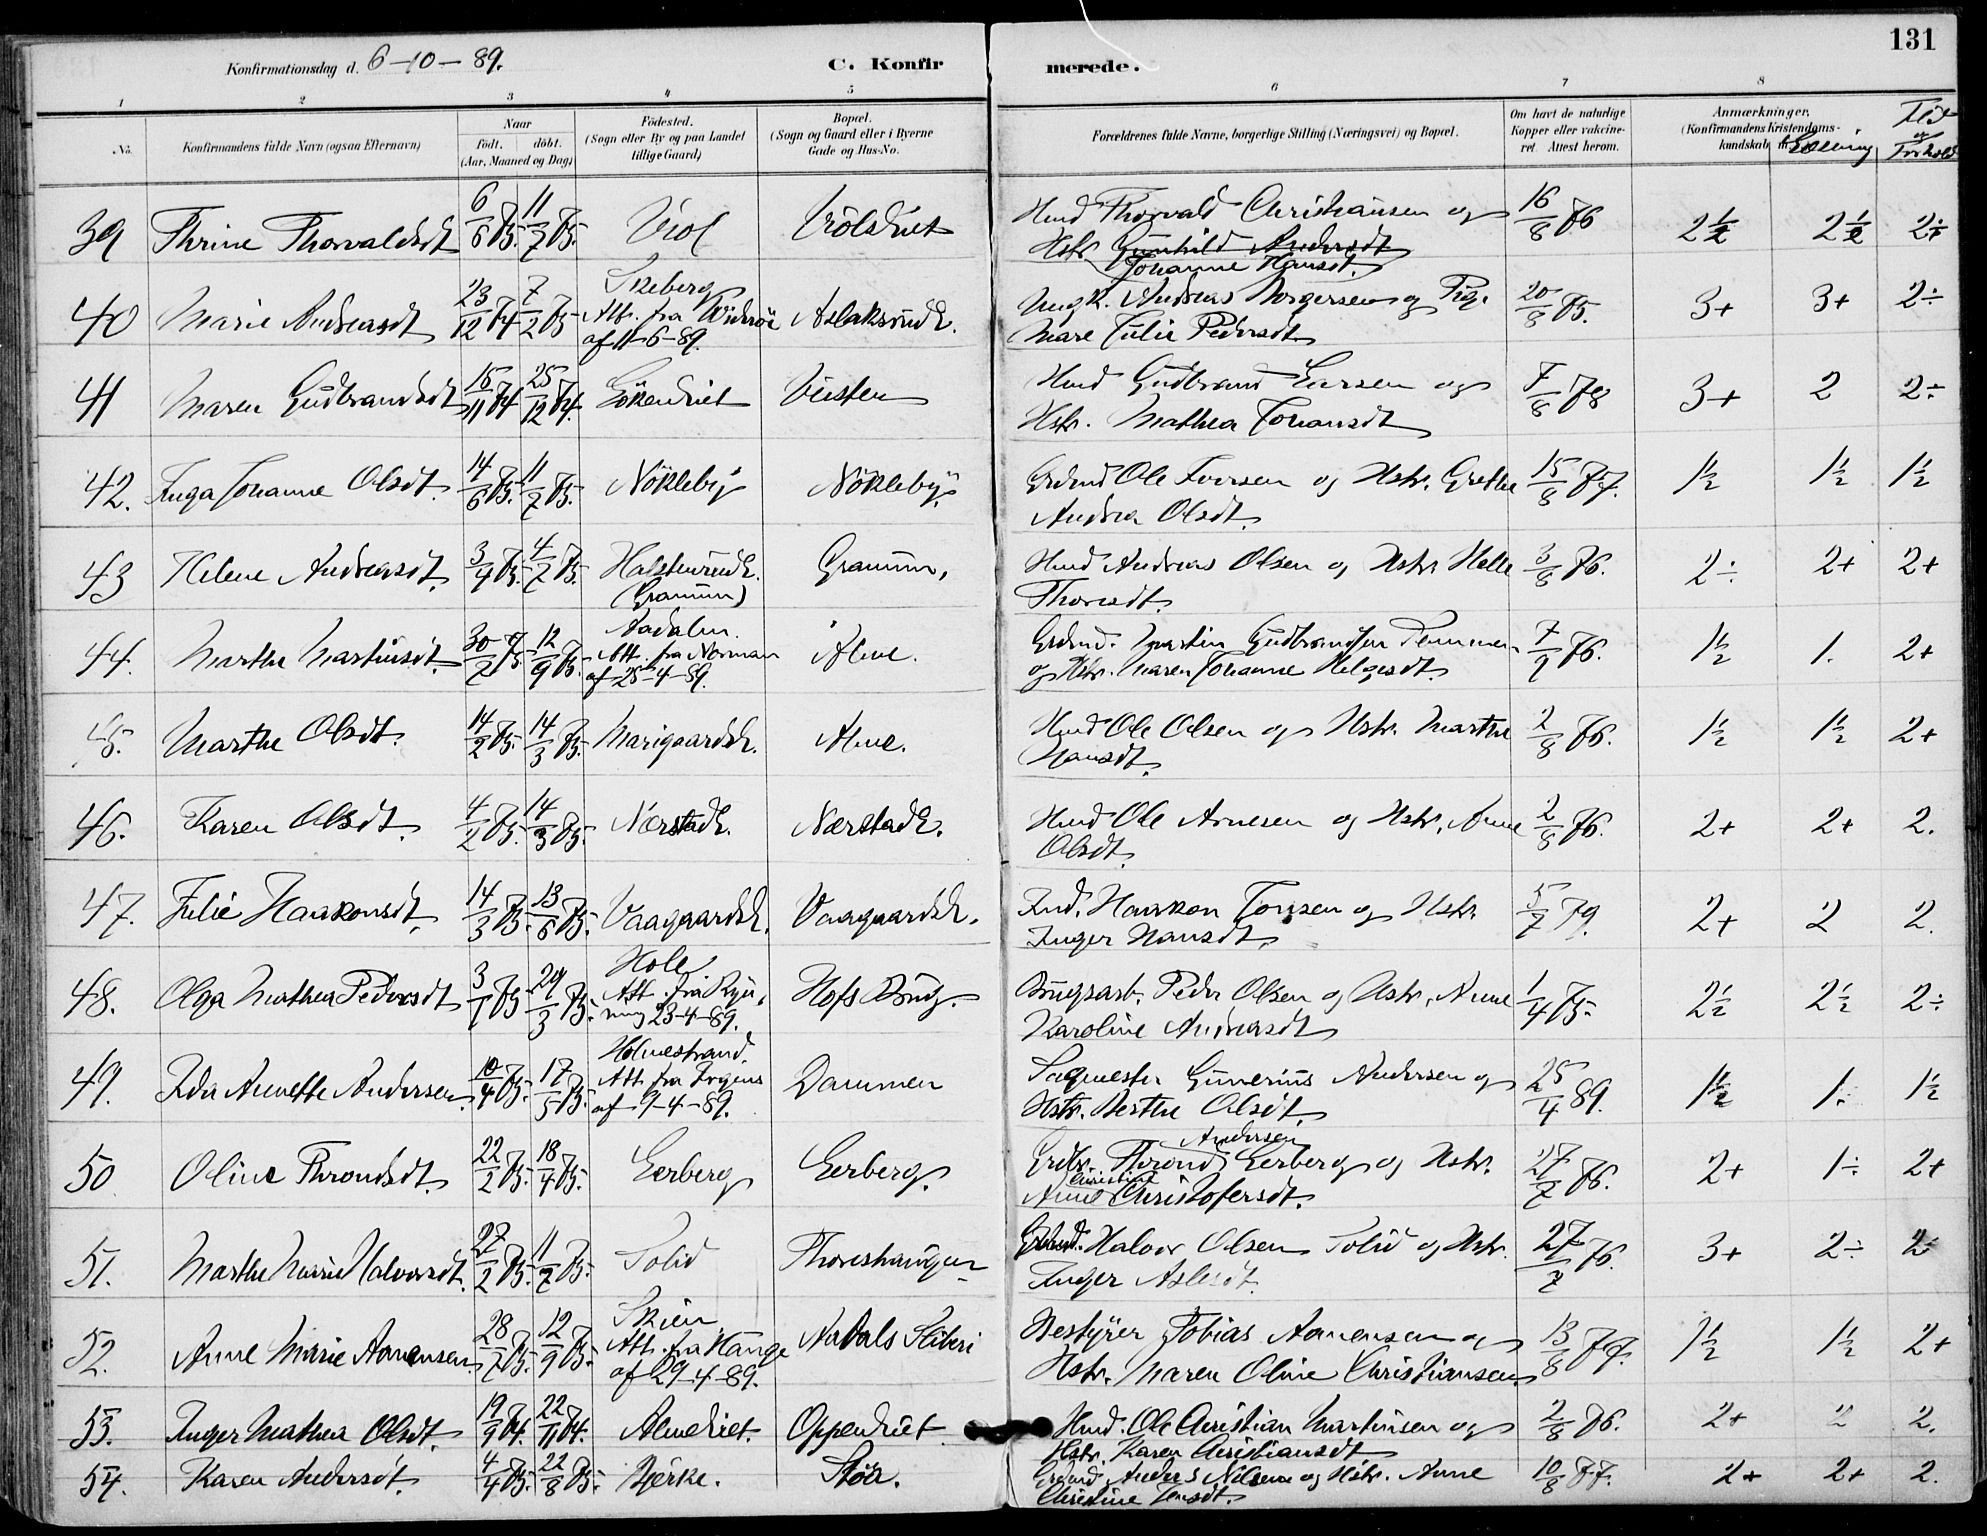 131
Konfirmationsdag d. 6-10-89. C. Konfirmerede.
1 2 3 4 5 6 7 8
No. Konfirmandens fulde Navn (ogsaa Efternavn) Naar født. døbt. (Aar, Maaned og Dag) Fødested. (Sogn eller By og paa Landet tillige Gaard) Bopæl. (Sogn og Gaard eller i Byerne Gade og Hus-No. Forældrenes fulde Navne, borgerlige Stilling (Næringsvei) og Bopæl. Om havt de naturlige Kopper eller vakcineret. Attest herom. Anmærkninger. (Konfirmandens Kristendomskundskab Læsning Flid og Forhold
39 Thrine Thorvaldsdt 6/6 75. 11/7 75. Viol Violsdiet Husmd Thorvald Christiansen og 16/8 76 2½ 2½ 2÷
Hstr. Gunhild Andersdt
Johanne Hansdt.
40 Marie Andreasdt 23/12 74 7/2 75 Skeberg Att. fra af 11-6-89. Aslaksrud Ungk. Andreas Borgersen og Pig. 20/8 75. 3+ 3+ 2÷
Mare Julie Pedersdt.
41 Maren Gudbrandsdt 15/11 74 25/12 74. Veisten Husmd Gudbrand Larsen og 7/8 78 3+ 2 2÷
Hstr. Mathea Johansdt
42. Inga Johanne Olsdt. 14/6 75. 11/7 75. Nökleby Nökleby. Grdmd Ole Iversen og Hstr. Grethe 15/8 77. 1½ 1½ 1½
Andrea Olsdt.
43 Helene Andreasdt. 3/4 75. 4/7 75. Halstenrud (Gramum) Gramum, Husmd Andreas Olsen og Hstr. Helle 3/8 76. 2÷ 2+ 2+
Thoresdt.
44. Marthe Martinsdt. 30/7 75 12/9 75. Aadalen. Att. fra Norman af 25-4-89. Alme. Grdmd. Martin Gudbrandsen 7/7 76. 1½ 1. 2+
og Hstr. Maren Johanne Helgesdt.
45. Marthe Olsdt. 14/2 75. 14/3 75. Marigaards Alme. Husmd Ole Olsen og Hstr. Marthe 2/8 76. 1½ 1½ 2+
Hansdt.
46. Karen Olsdt. 4/2 75. 14/3 75. Nærstad Nærstad. Husmd Ole Arnesen og Hstr. Anne 2/8 76. 2+ 2+ 2.
Olsdt.
47. Julie Haakonsdt. 14/3 75. 13/6 75. Vaagaards Vaagaards. Ind. Haakon Jonsen og Hstr. 5/7 79. 2+ 2 2.
Inger Hansdt.
48. Olga Mathea Pedersdt 3/1 75 29/3 75. Hole Att. fra 23-4-89. Hofs Brug. Brugsarb. Peder Olsen og Hstr. Anne 1/4 75. 2½ 2½ 2÷
Karoline Andreasdt
49. Ida Annette Andersen 10/4 75. 17/5 75. Holmestrand. Att. fra af 9-4-89. Dammen Sagmester Gunerius Andersen og 25/4 89. 1½ 1. 1½
Hstr. Berthe Olsdt.
50 Oline Throndsdt. 22/2 75. 18/4 75. Gerberg Gerberg. Grdbr. Thrond Andersen Gerberg og Hstr. 27/7 76. 2+ 1÷ 2+
Anne Christine Christofersdt.
51. Marthe Marie Halvorsdt. 27/2 75. 11/7 75. Solid Thoreshaugen Halvor Olsen Solid og Hstr. 27/7 76. 3+ 2÷ 2
Inger Aslesdt.
52. Anne Marie Aamensen 28/7 75. 12/9 75. Skien Att. fra Hauge af 29-4-89. Aadals Sliberi Bestyrer Tobias Aamensen og 13/8 77. 1½ 1½ 2+
Hstr. Maren Oline Christiansen
53. Inger Mathea Olsdt. 19/9 74. 22/11 74. Almediet. Oppendiet Husmd. Ole Christian Martinsen og 2/8 76. 2+ 2 2.
Hstr. Karen Christiansdt
54. Karen Andersdt. 4/4 75. 22/8 75. Bjerke. Stöa. Grdmd Anders Nilsen og Hstr. Anne 10/8 77. 2+ 2+ 2.
Christine Jensdt.